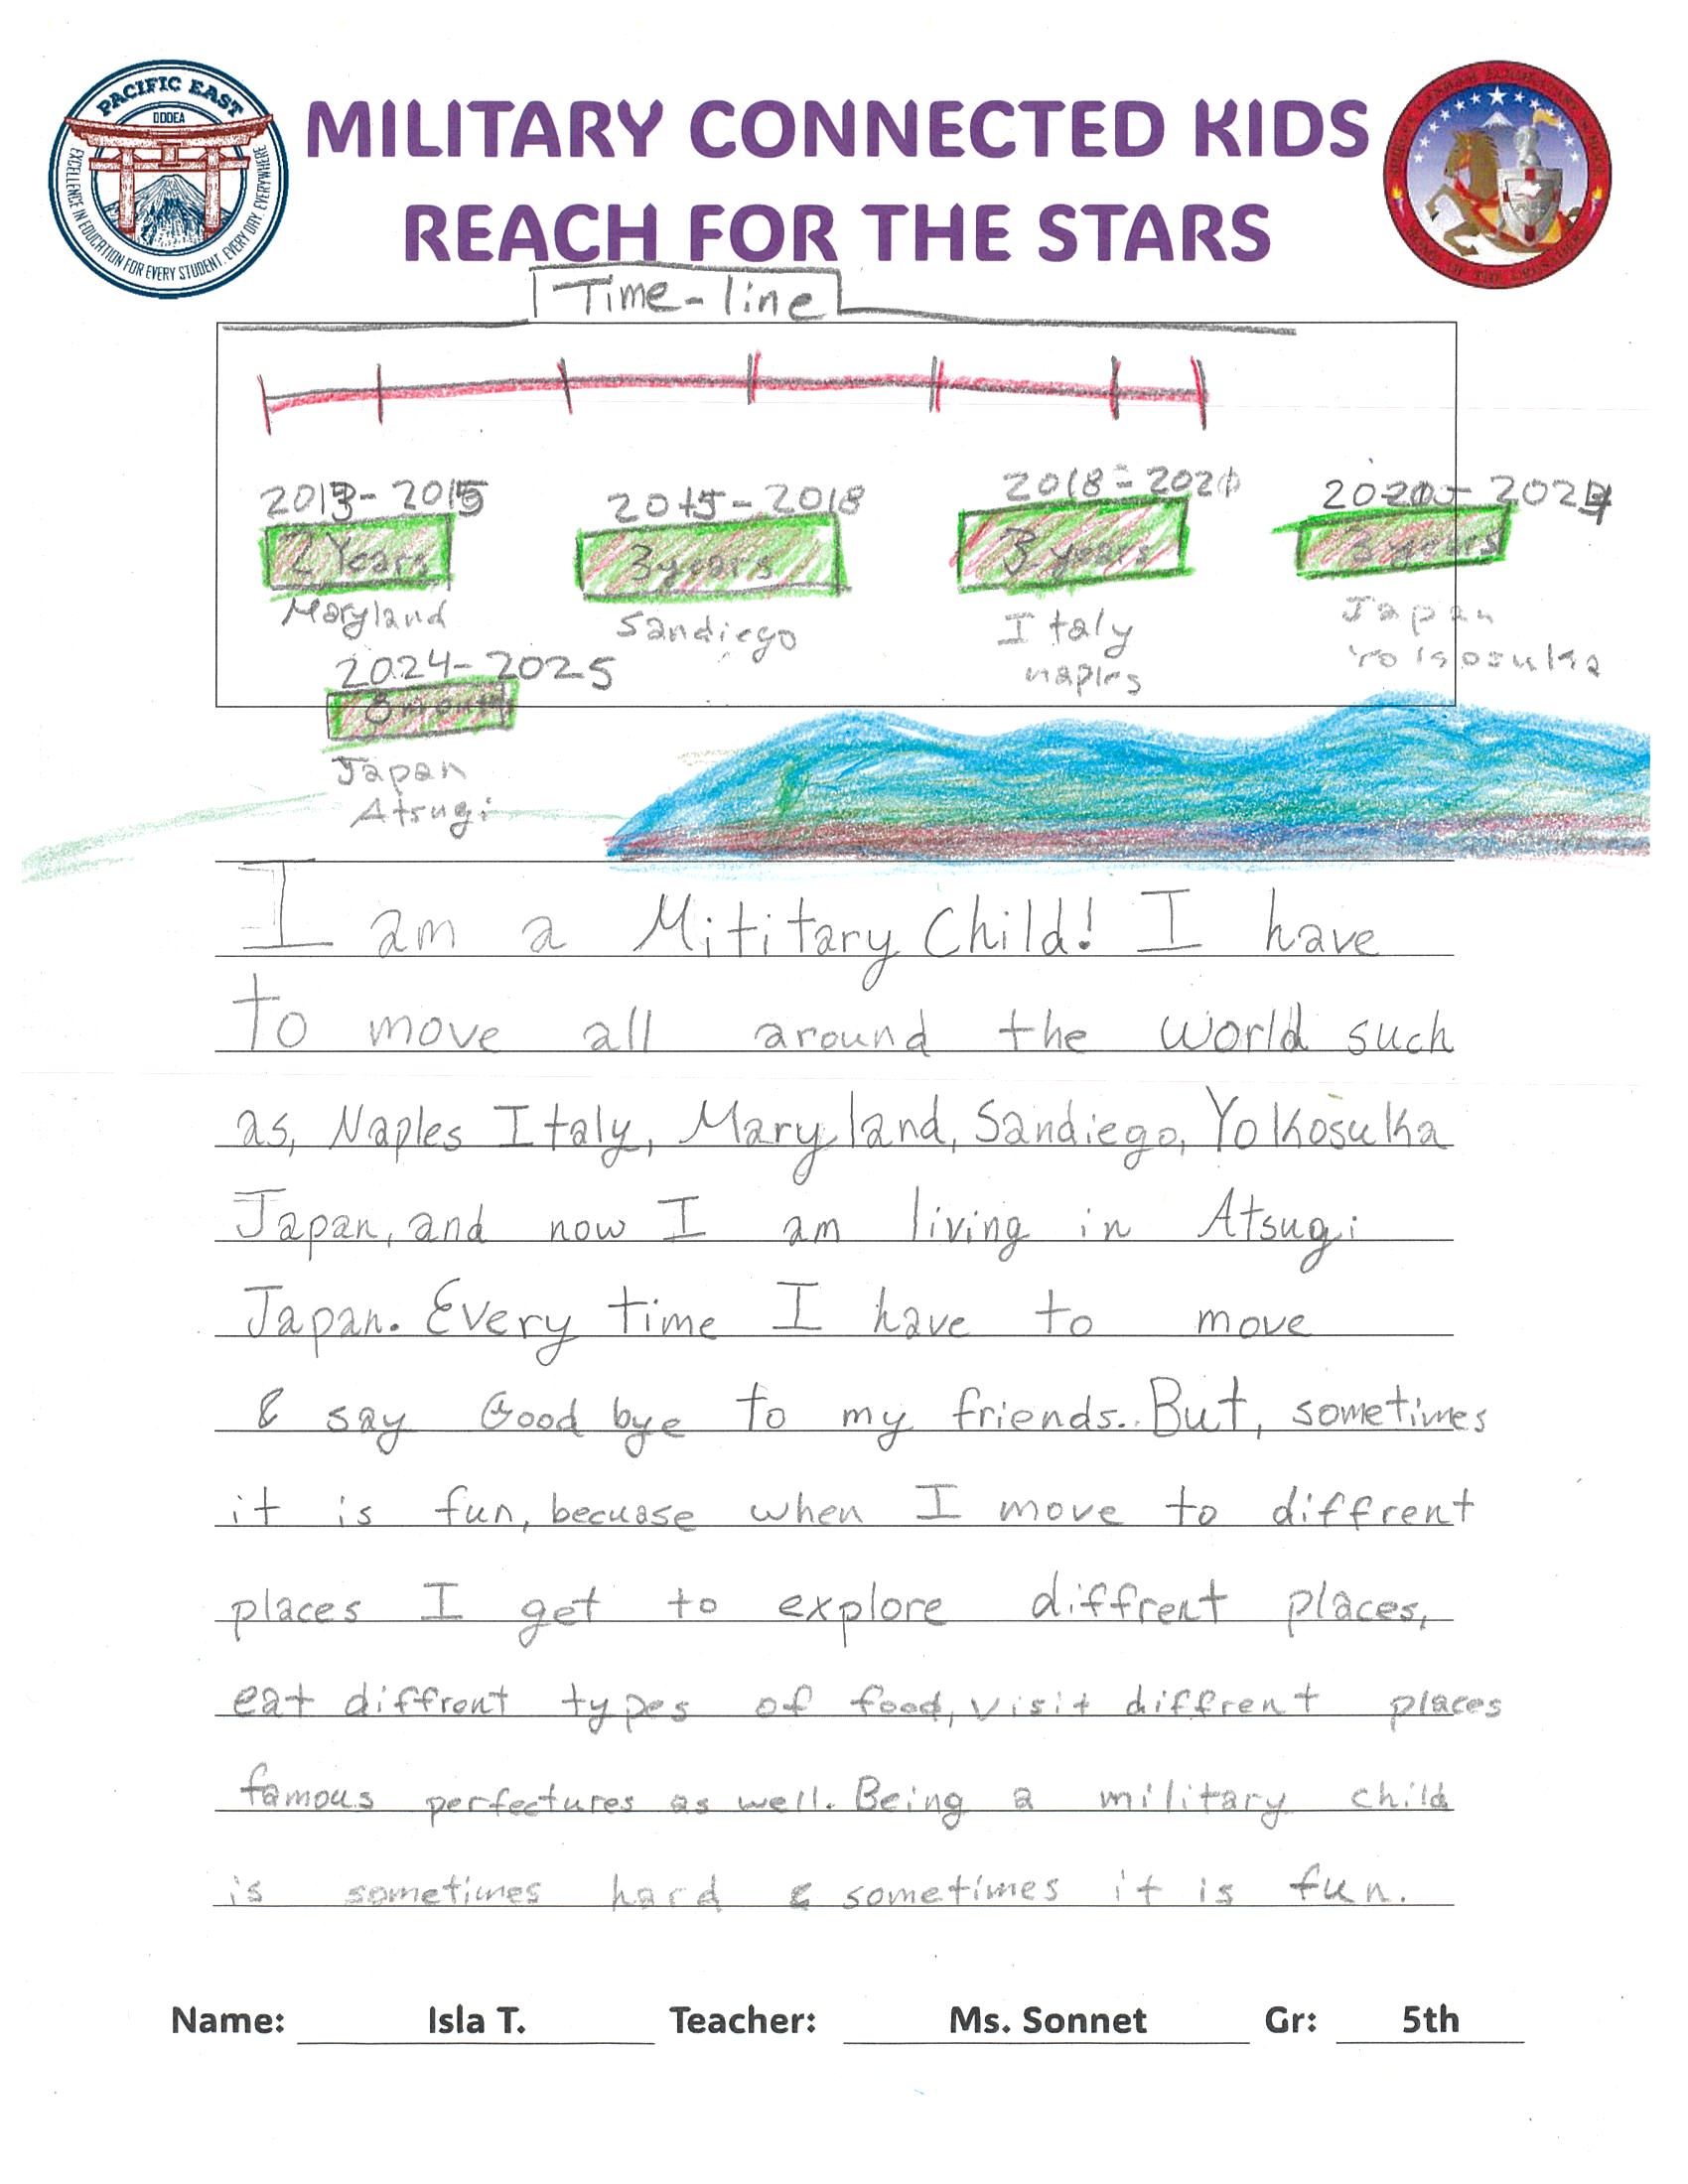 PACIFIC EAST
DODEA
EXCELLENCE IN EDUCATION FOR EVERY STUDENT, EVERY DAY, EVERYWHERE
MILITARY CONNECTED KIDS
REACH FOR THE STARS
Time-line
2013-2015 2015-2018 2018-2021 2020-2024
2 Years 3 years 3 years 3 years
Maryland Sandiego Italy Japan
naples Yokosuka
2024-2025
8
Japan
Atsugi
I am a Mititary Child! I have
to move all around the world such
as, Naples Italy, Maryland, Sandiego, Yokosuka
Japan, and now I am living in Atsugi
Japan. Every time I have to move
& say Good bye to my friends. But, sometimes
it is fun, becuase when I move to diffrent
places I get to explore diffrent places,
eat diffront types of food, visit diffrent places
famous perfectures as well. Being a military child
is sometimes hard & sometimes it is fun.
Name: Isla T. Teacher: Ms. Sonnet Gr: 5th